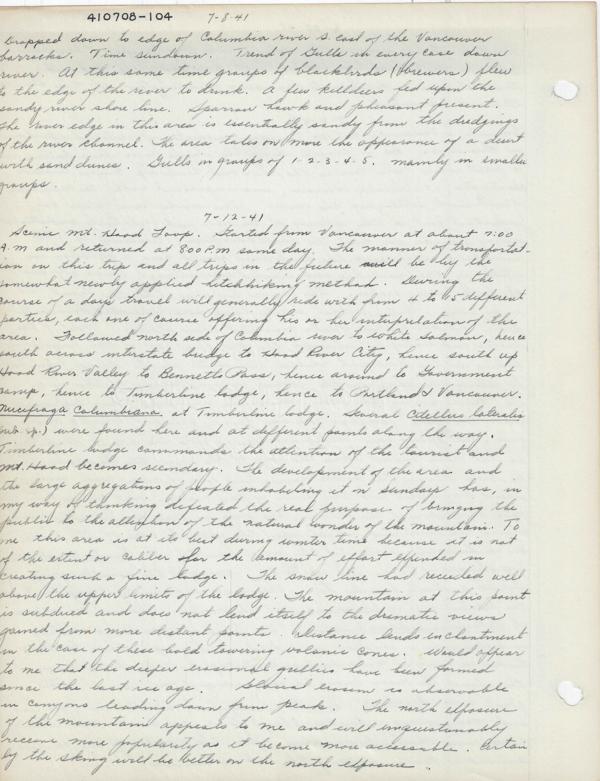 410708-104 7-8-41
Dropped down to edge of Columbia river S. east of the Vancouver
barracks. Time sundown. Trend of Gulls in every case down
river. At this same time groups of blackbirds (Brewers) flew
to the edge of the river to drink. A few killdeers fed upon the
sandy river shore line. Sparrow hawk and pheasant present.
The river edge in this area is essentially sandy from the dredgings
of the river channel. The area takes on more the appearance of a desert
with sand dunes. Gulls in groups of 1-2-3-4-5. mainly in smaller
groups.
7-12-41
Scenic Mt. Hood Loop. Started from Vancouver at about 7:00
A.M and returned at 800 P.M same day. The manner of transportat-
ion on this trip and all trips in the future will be by the
somewhat newly applied hitchhiking method. During the
course of a days travel will generally ride with from 4 to 5 different
parties, each one of course offering his or her interpretation of the
area. Followed north side of Columbia river to White Salmon, hence
south across interstate bridge to Hood River City, hence south up
Hood River Valley to Bennetts Pass, hence around to Government
camp, hence to Timberline lodge, hence to Portland & Vancouver.
Nucifraga columbiana. at Timberline lodge. Several Citellus lateralis
(sub sp.) were found here and at different points along the way.
Timberline lodge commands the attention of the tourist and
Mt. Hood becomes secondary. The development of the area and
the large aggregations of people inhabiting it on Sundays has, in
my way of thinking defeated the real purpose of bringing the
public to the attention of the natural wonder of the mountain. To
me this area is at its best during winter time because it is not
of the extent or caliber for the amount of effort expended in
creating such a fine lodge. The snow line had receeded well
above the upper limits of the lodge. The mountain at this point
is subdued and does not lend itself to the dramatic views
gained from more distant points. Distance lends enchantment
in the case of these bold towering volcanic cones. Would appear
to me that the deeper erosional gullies have been formed
since the last ice age. Glacial erosion is observable
in canyons leading down from peak. The north exposure
of the mountain appeals to me and will unquestionably
receive more popularity as it become more accessable. Certain
by the skiing will be better on the north exposure.